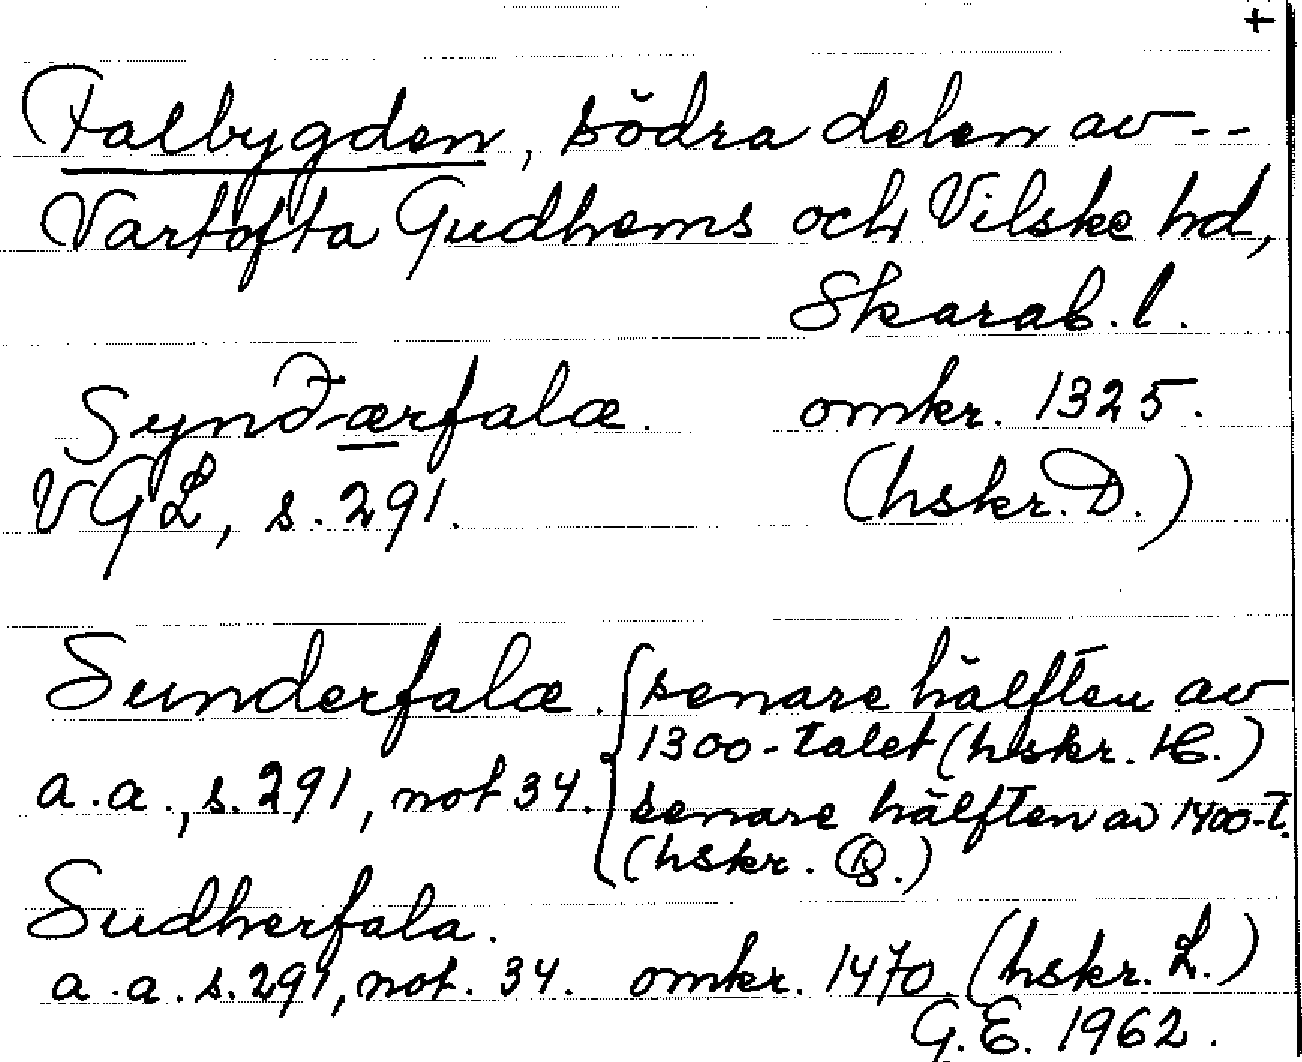 +
Falbygden, södra delen av --
Vartofta Gudhems och Vilske hd,
Skarab. l.
Synðærfalæ. omkr. 1325.
VGL, s. 291. (hskr. D.)
Sunderfalæ. senare hälften av
1300-talet (hskr. C.)
a.a., s. 291, not 34. senare hälften av 1400-t.
(hskr. B.)
Sudherfala.
a.a. s. 291, not. 34. omkr. 1470 (hskr. L.)
G.E. 1962.